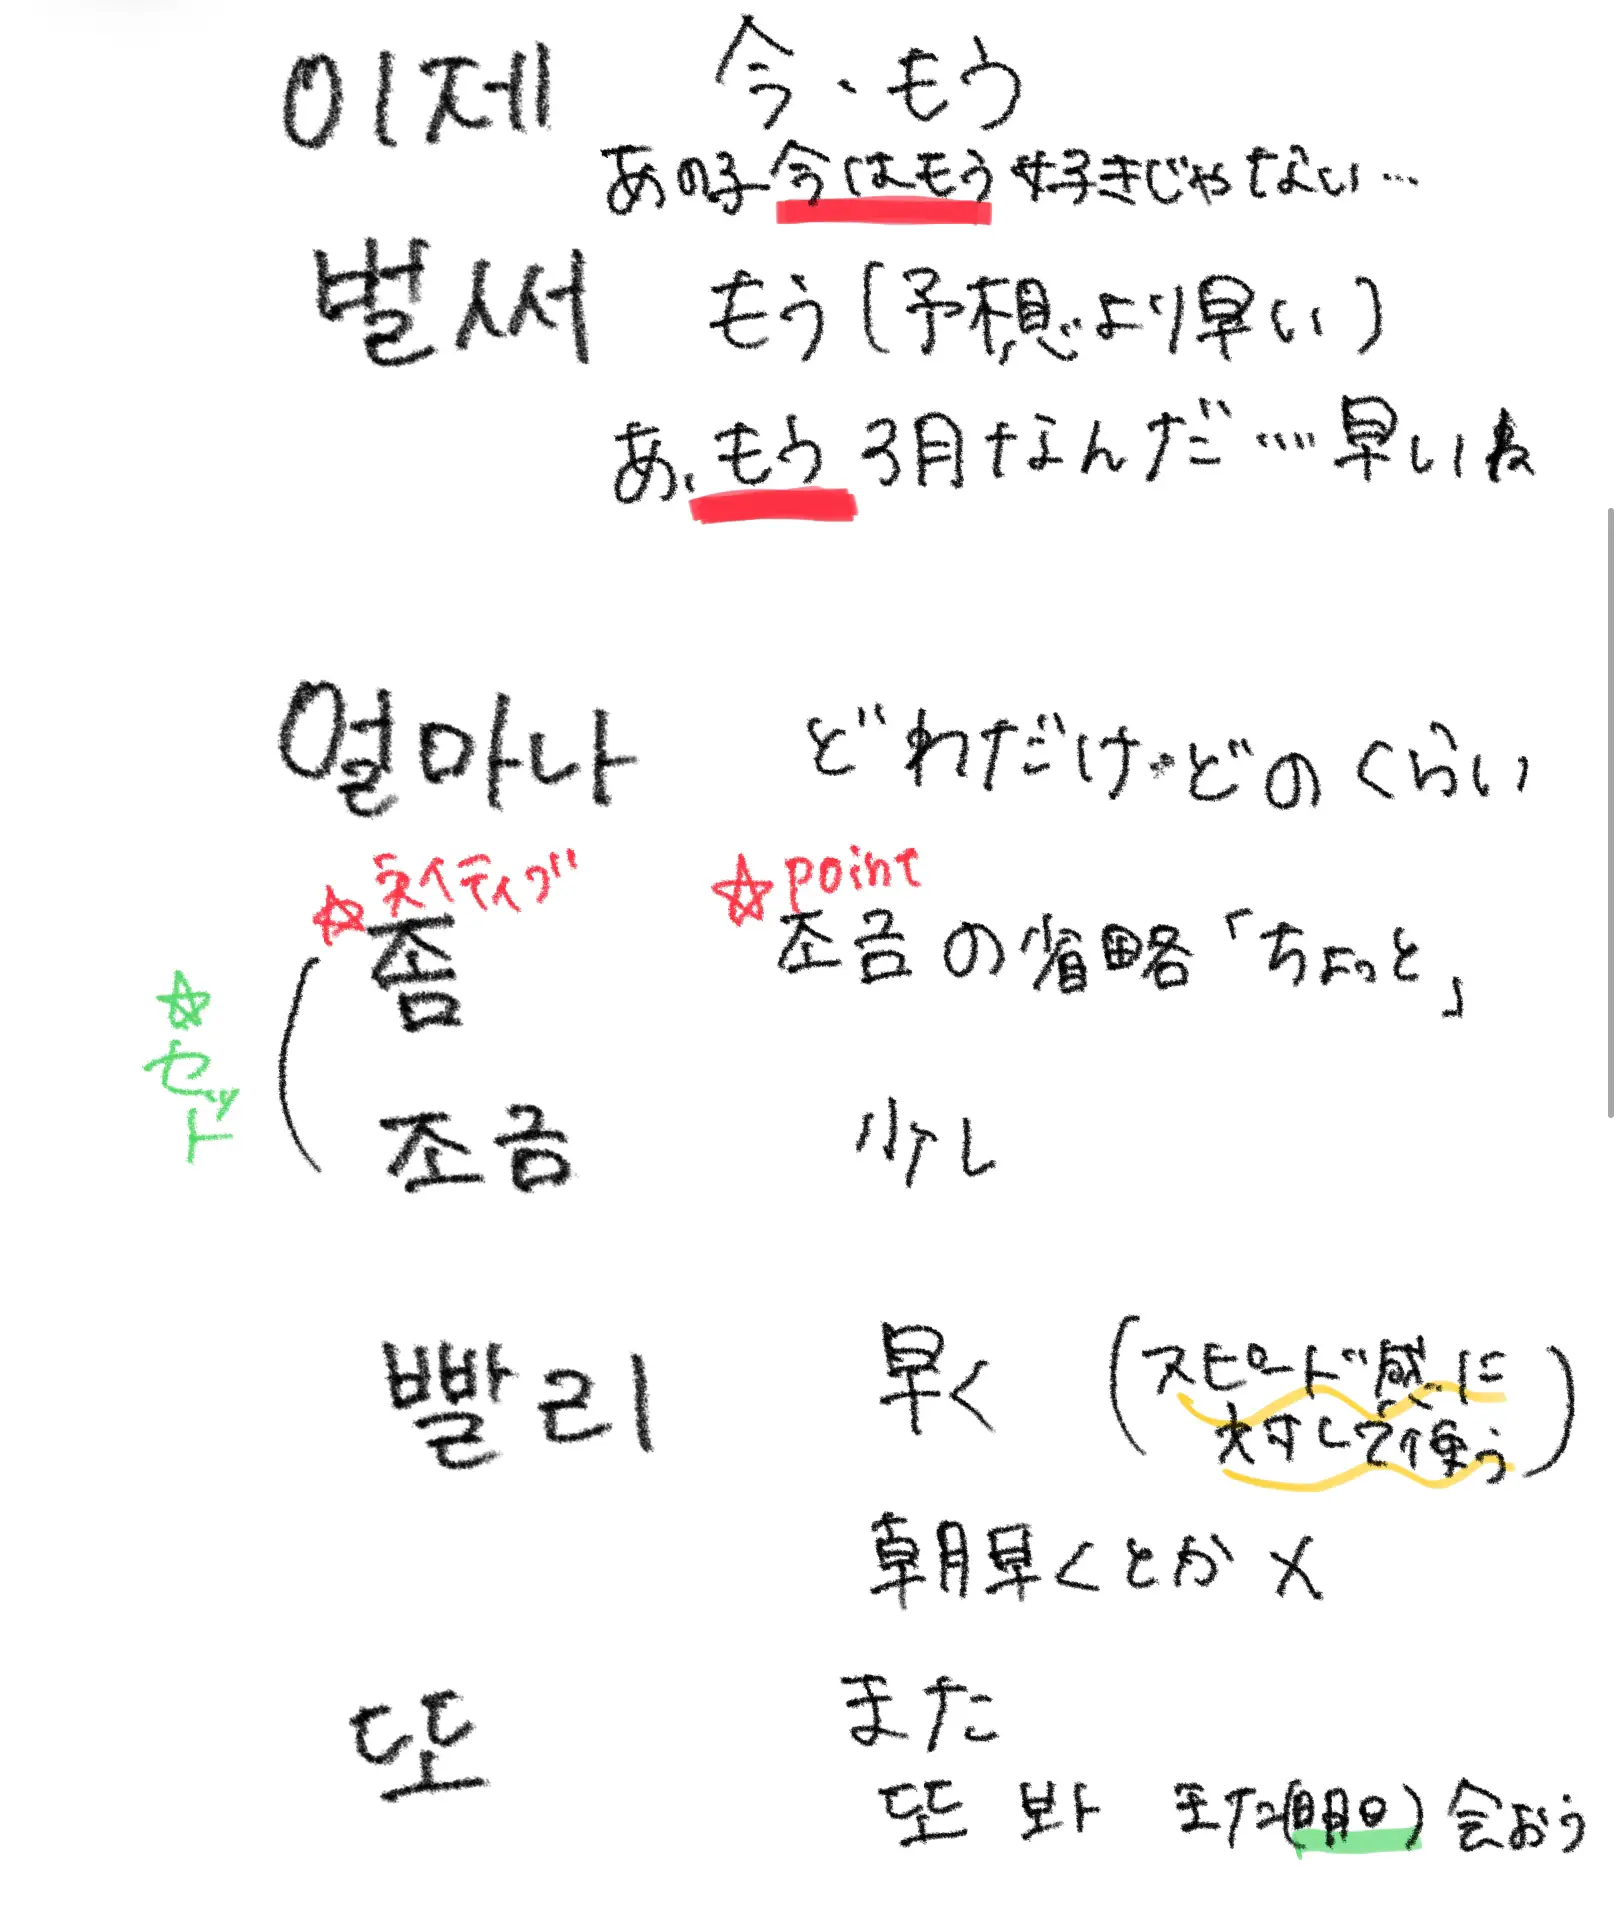 이제 今・もう
あの子今はもう好きじゃない…
벌써 もう(予想より早い)
あ、もう3月なんだ…早いね
얼마나 どれだけ・どのくらい
☆ネイティブ ☆point
좀 조금の省略「ちょっと」
☆セット
조금 少し
빨리 早く (スピード感に
対して使う)
朝早くとか×
또 また
또 봐 また(明日)会おう